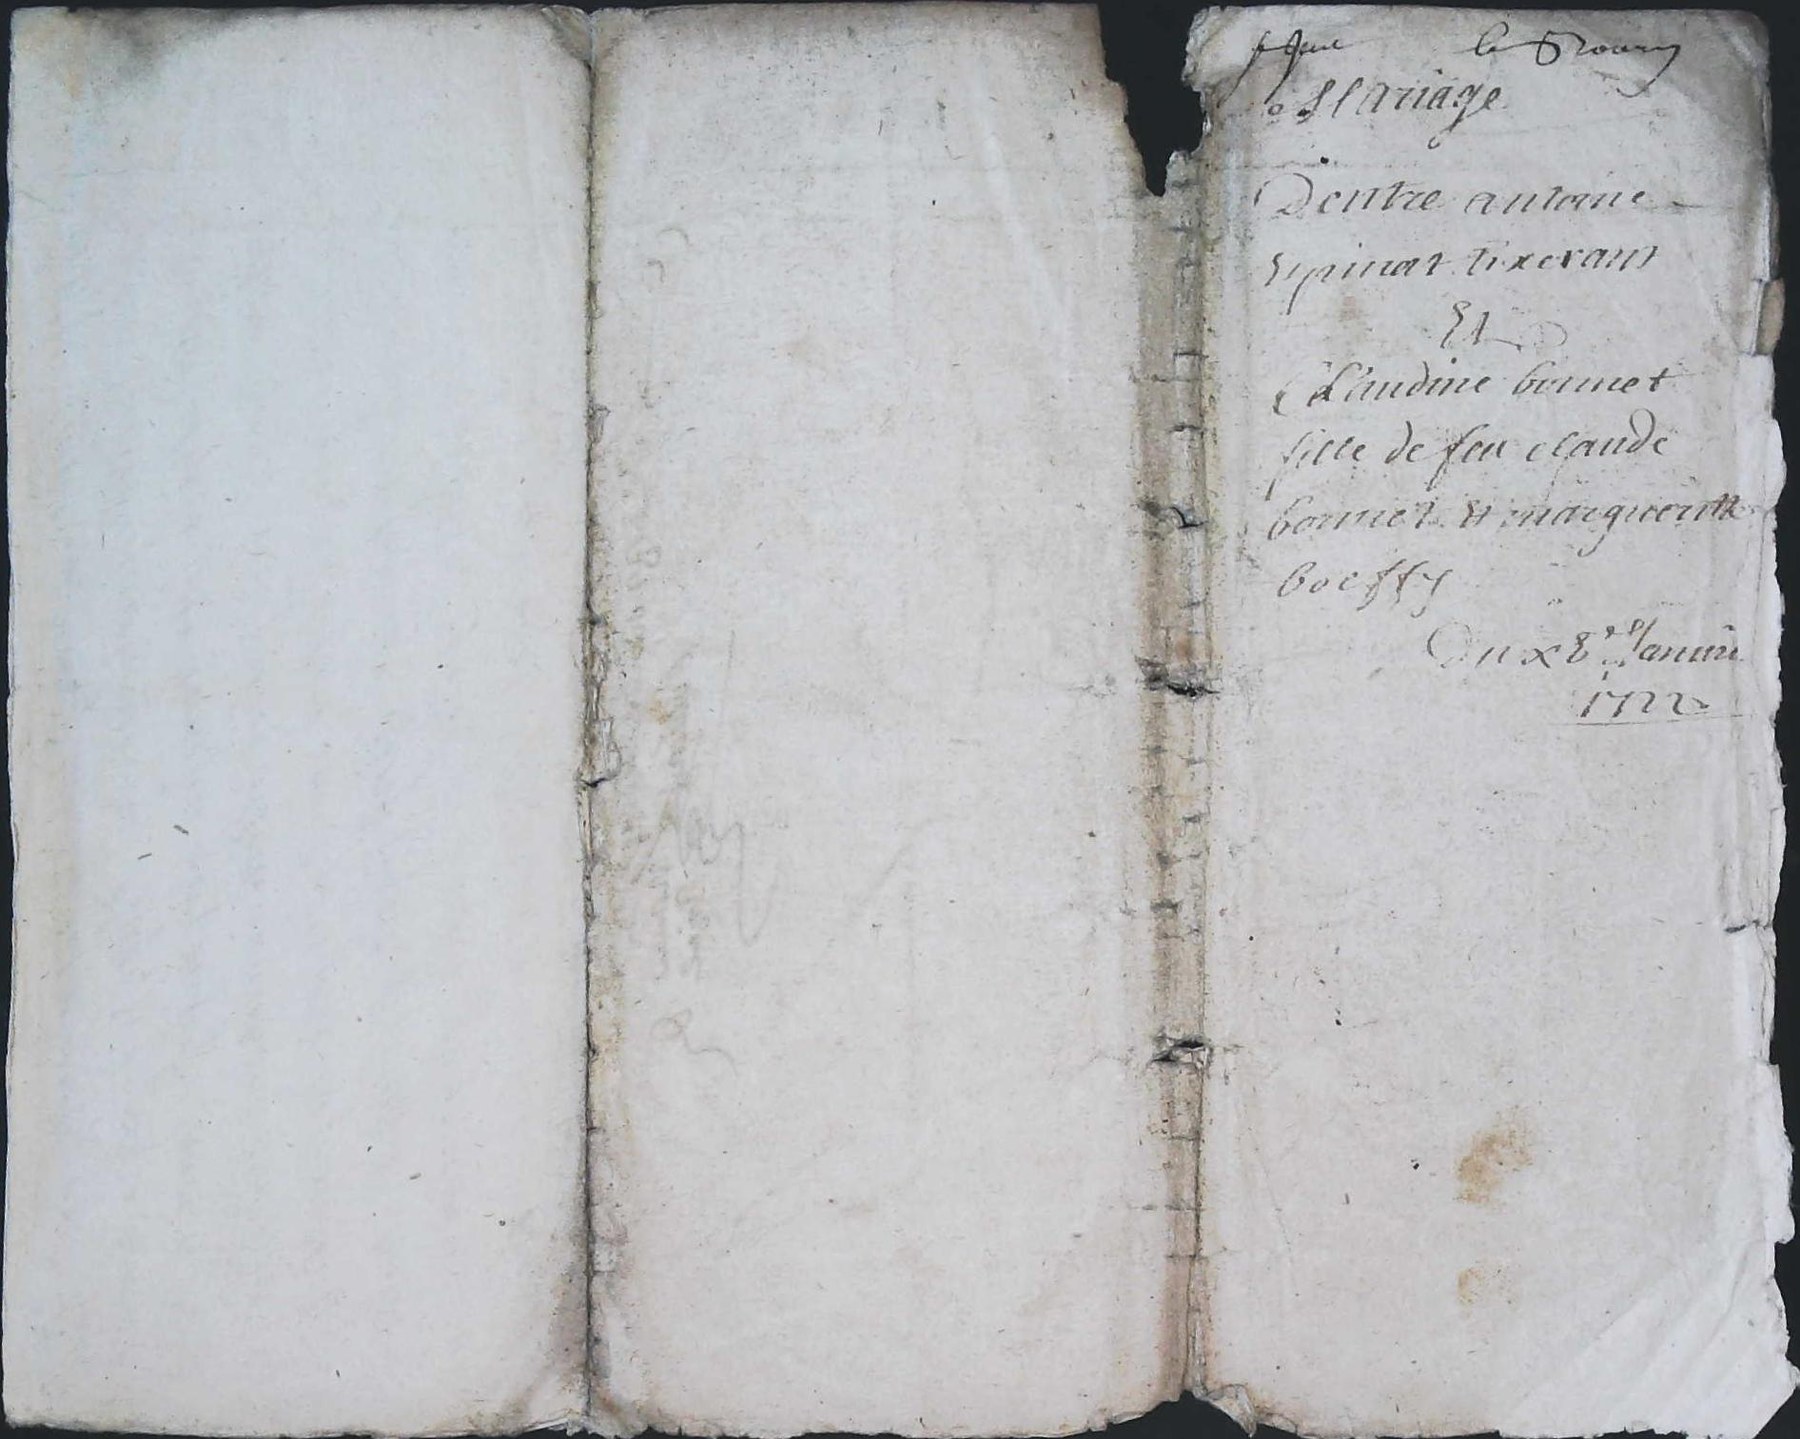 Mariage
Dentre antoine
Epinat tixerant
Et
Claudine bonnet
fille de feu claude
bonnet Et margueritte
boeffy
Du x8e Janvier
1722